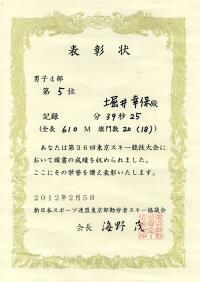 表彰状
男子4部
第 5 位
堀井幸保殿
記録 分39秒25
(全長 610 M 旗門数 20 (18))
あなたは第36回東京スキー競技大会に
おいて頭書の成績を収められました。
ここにその栄誉を讃え表彰いたします。
2012年2月5日
新日本スポーツ連盟東京都勤労者スキー協議会
会長 海野 茂